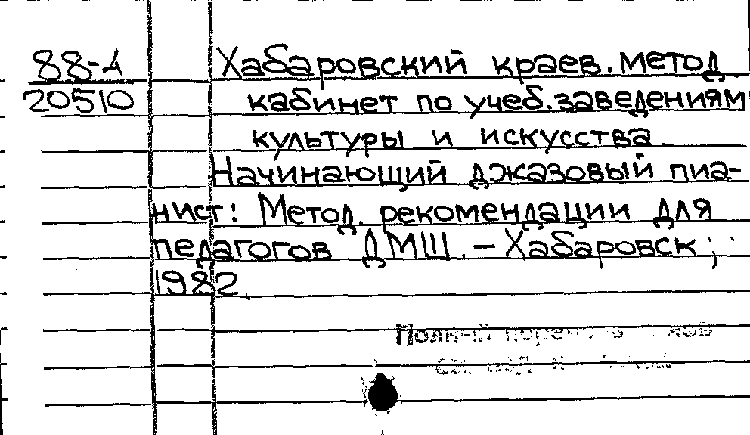 88-А Хабаровский краев. метод
20510 кабинет по учеб. заведениям
культуры и искусства.
Начинающий джазовый пиа-
нист: Метод. рекомендации для
педагогов ДМШ. – Хабаровск;
1982.